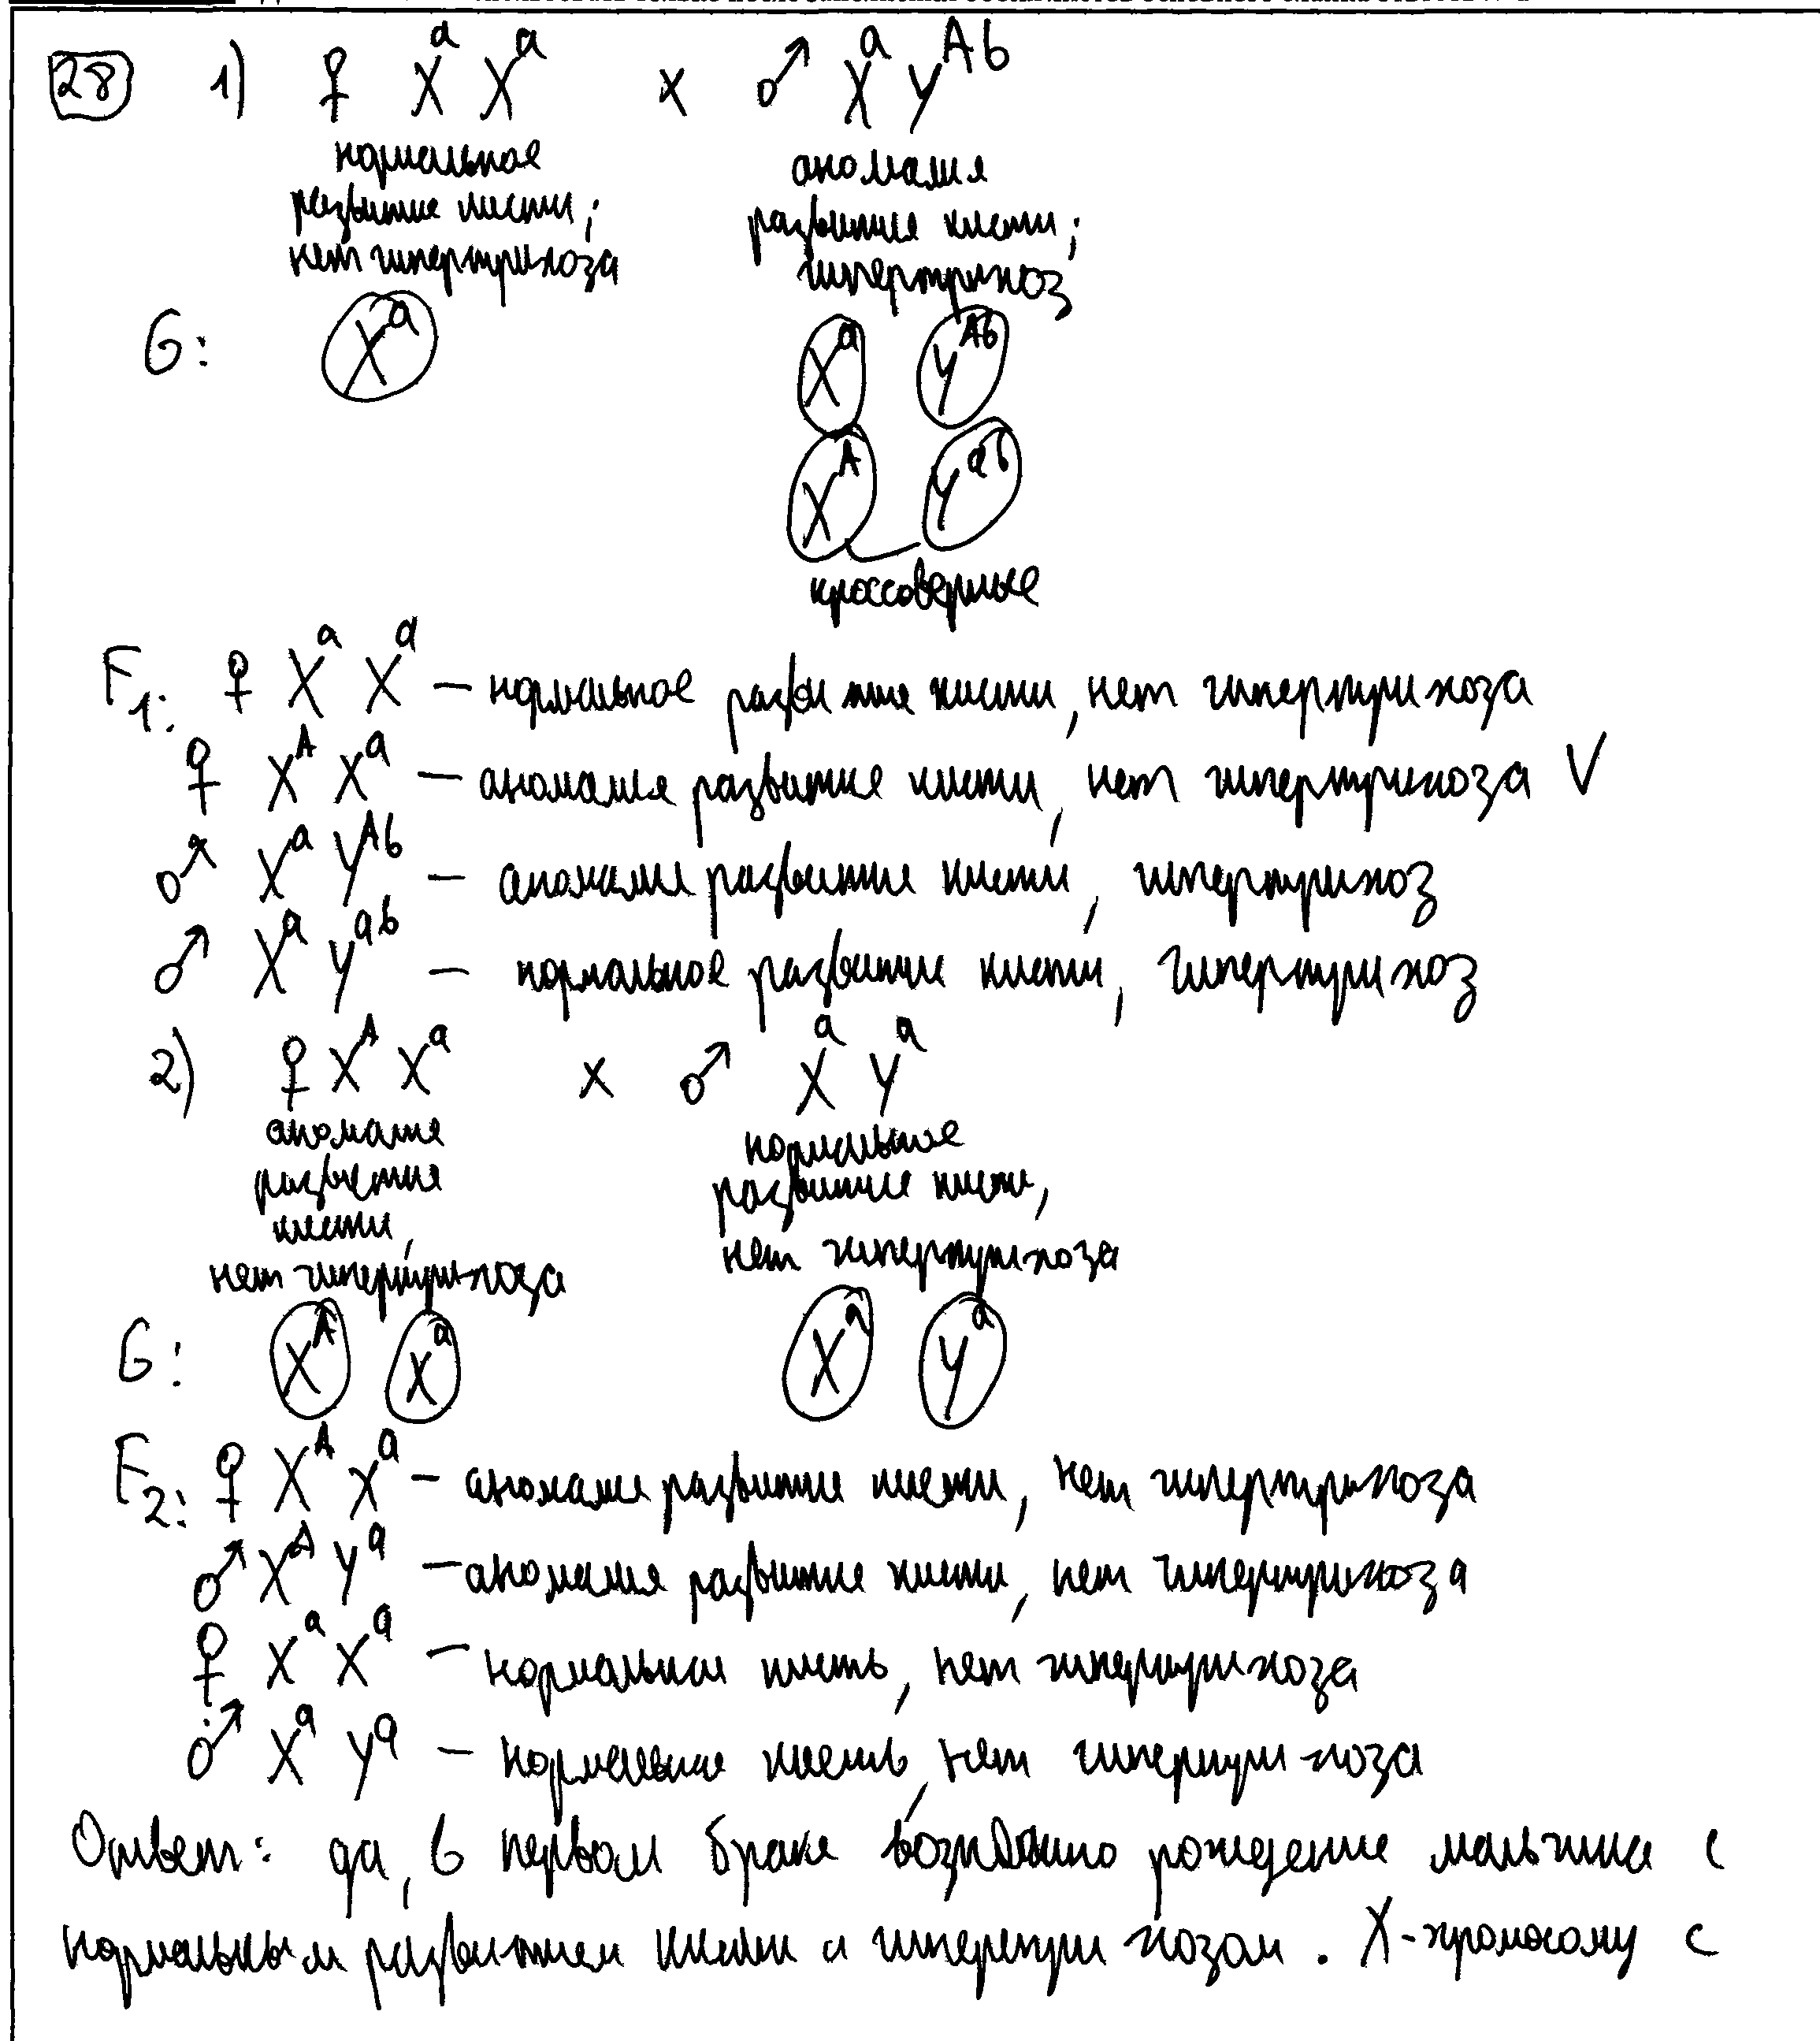 28 1) ♀ XᵃXᵃ x ♂ XᵃYᴬᵇ
нормальное аномалия
развитие кисти; развития кисти;
нет гипертрихоза гипертрихоз
G: Xᵃ Xᵃ Yᴬᵇ
Xᴬ Yᵃᵇ
кроссоверные
F₁: ♀ XᵃXᵃ — нормальное развитие кисти, нет гипертрихоза
♀ XᴬXᵃ — аномалия развития кисти, нет гипертрихоза V
♂ XᵃYᴬᵇ — аномалия развития кисти, гипертрихоз
♂ XᵃYᵃᵇ — нормальное развитие кисти, гипертрихоз
2) ♀ XᴬXᵃ x ♂ XᵃYᵃ
аномалия нормальное
развития развитие кисти,
кисти, нет гипертрихоза
нет гипертрихоза
G: Xᴬ Xᵃ Xᵃ Yᵃ
F₂: ♀ XᴬXᵃ — аномалия развития кисти, нет гипертрихоза
♂ XᴬYᵃ — аномалия развития кисти, нет гипертрихоза
♀ XᵃXᵃ — нормальная кисть, нет гипертрихоза
♂ XᵃYᵃ — нормальная кисть, нет гипертрихоза
Ответ: да, в первом браке возможно рождение мальчика с
нормальным развитием кисти и гипертрихозом. X-хромосому с